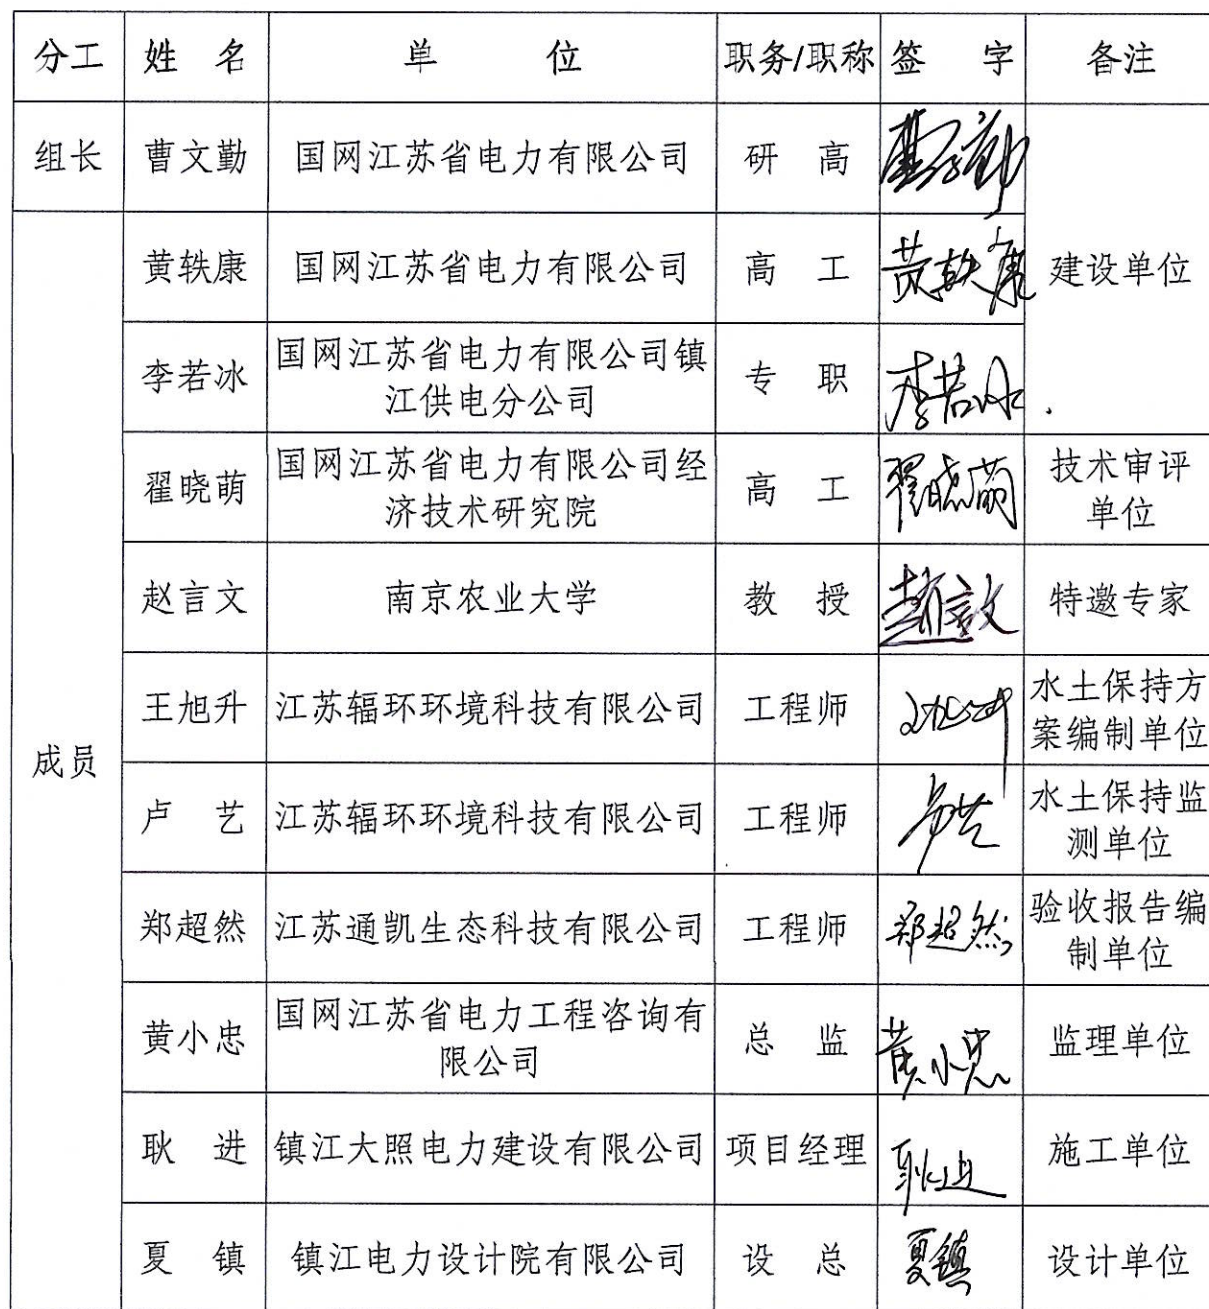 分工 姓 名 单 位 职务/职称 签 字 备注
组长 曹文勤 国网江苏省电力有限公司 研 高 曹文勤
黄轶康 国网江苏省电力有限公司 高 工 黄轶康 建设单位
李若冰 国网江苏省电力有限公司镇
江供电分公司 专 职 李若冰
翟晓萌 国网江苏省电力有限公司经
济技术研究院 高 工 翟晓萌 技术审评
单位
赵言文 南京农业大学 教 授 赵言文 特邀专家
成员
王旭升 江苏辐环环境科技有限公司 工程师 王旭升 水土保持方
案编制单位
卢 艺 江苏辐环环境科技有限公司 工程师 卢艺 水土保持监
测单位
郑超然 江苏通凯生态科技有限公司 工程师 郑超然 验收报告编
制单位
黄小忠 国网江苏省电力工程咨询有
限公司 总 监 黄小忠 监理单位
耿 进 镇江大照电力建设有限公司 项目经理 耿进 施工单位
夏 镇 镇江电力设计院有限公司 设 总 夏镇 设计单位